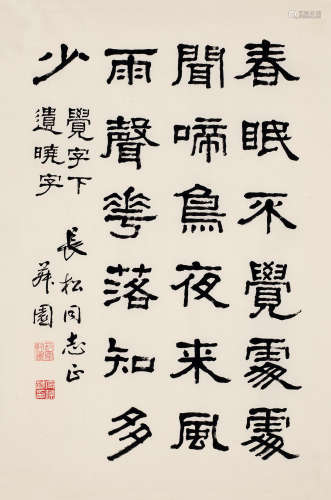 春眠不覺處處
聞啼鳥夜来風
雨聲花落知多
少
覺字下
遺曉字
長松同志正